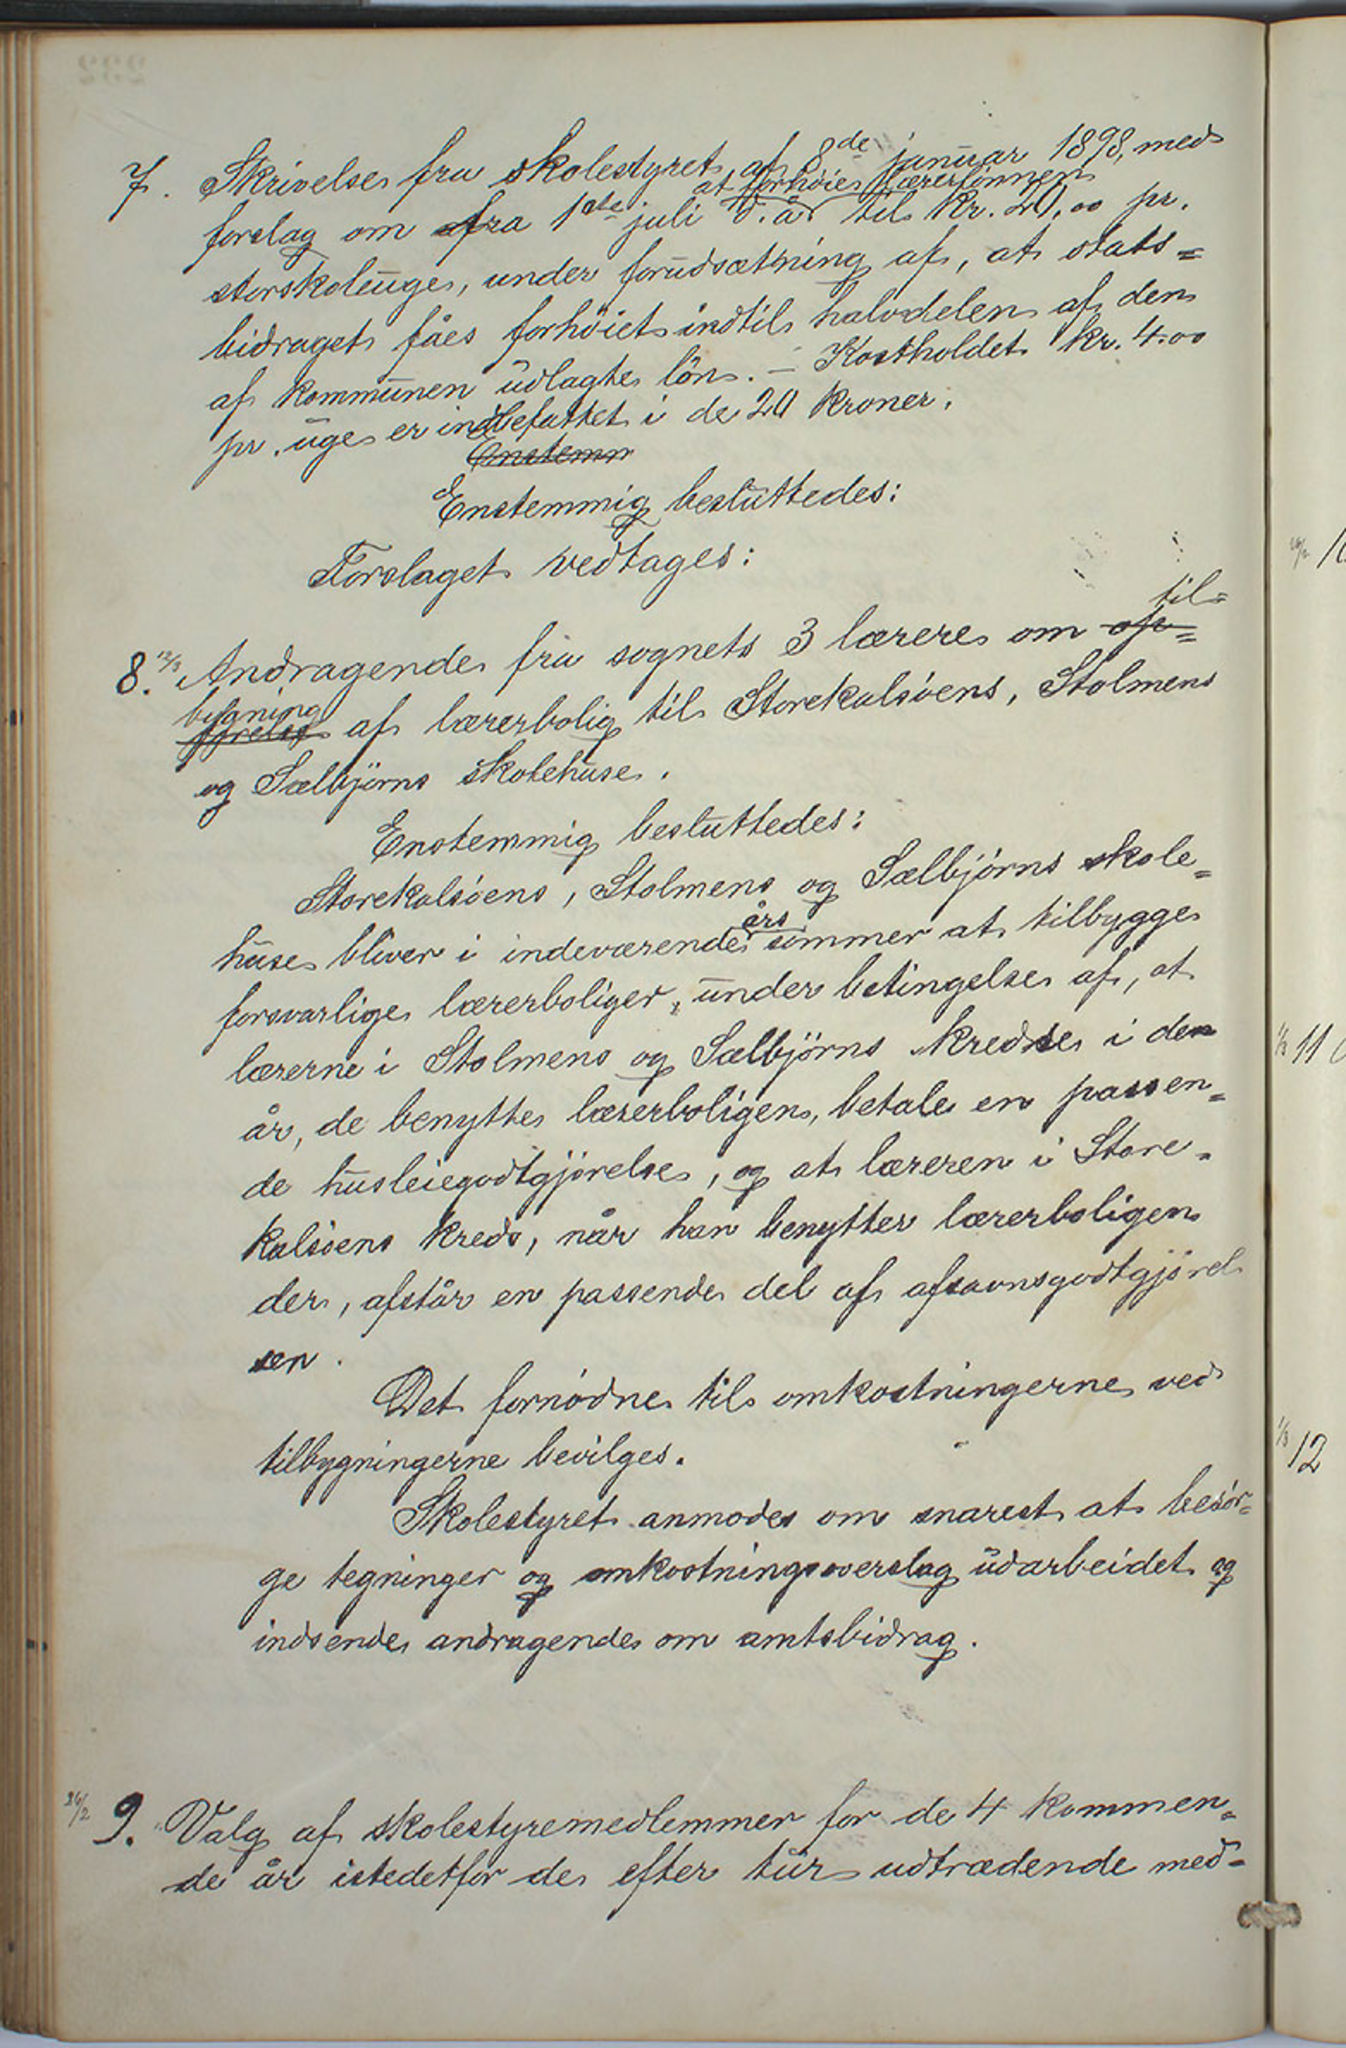 7. Skrivelse fra skolestyret af 8de januar 1898, med
forslag om fra 1ste juli d. år at forhøie lærerlønnen til kr. 20,00 pr.
storskoleuge, under forudsætning af, at stats=
bidraget fåes forhøiet indtil halvdelen af den
af kommunen udlagte løn. – Kostholdet kr. 4.00
pr. uge er indbefattet i de 20 kroner.
Enstemm
Enstemmig besluttedes:
Forslaget vedtages:
8. 12/3 Andragende fra sognets 3 lærere om op= til=
bygning af lærerbolig til Storekalsøens, Stolmens
og Sælbjørns skolehuse.
Enstemmig besluttedes:
Storekalsøens, Stolmens og Sælbjørns skole=
huse bliver i indeværende års sommer at tilbygge
forsvarlige lærerboliger, under betingelse af, at
lærerne i Stolmens og Sælbjørns kredse i den
år, de benytte lærerboligen, betale en passen=
de husleiegodtgjørelse, og at læreren i Store=
kalsøens kreds, når han benytter lærerboligen
der, afstår en passende del af afsavnsgodtgjørel
sen.
Det fornødne til omkostningerne ved
tilbygningerne bevilges.
Skolestyret anmodes om snarest at besør=
ge tegninger og omkostningsoverslag udarbeidet og
indsende andragende om amtsbidrag.
26/2 9. Valg af skolestyremedlemmer for de 4 kommen=
de år istedetfor de efter tur udtrædende med=
1/3 11
1/3 12